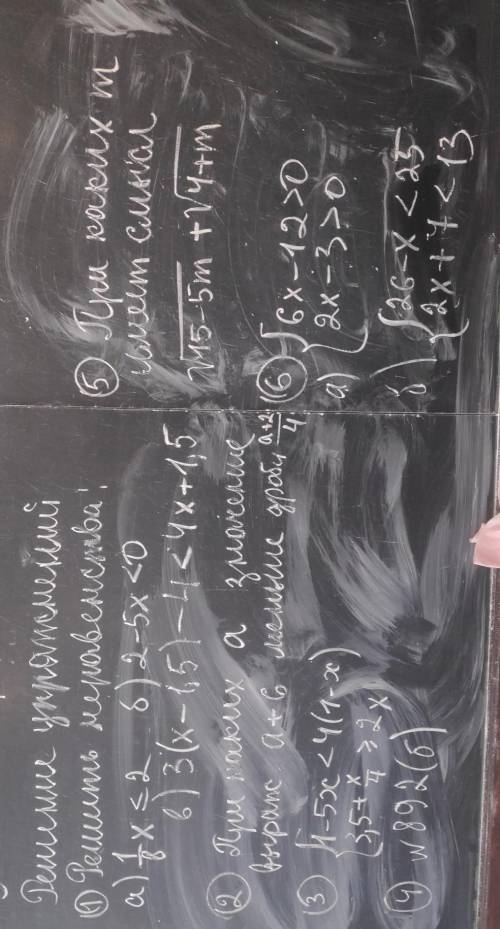 Решение упражнений
① Решить неравенства:
а) 1/8 x ≤ 2 б) 2-5x<0
в) 3(x-1,5)-4<4x+1,5
② При каких а значение
выраж а+6 меньше дроби a+2/4
③ { 4-5x<4(1-x)
{ 3,5+x/4 ≥ 2x
④ № 892(б)
⑤ При каких m
имеет смысл
√15-5m + √4+m
⑥
а) { 6x-12>0
{ 2x-3>0
б) { 26-x<25
{ 2x+7<13